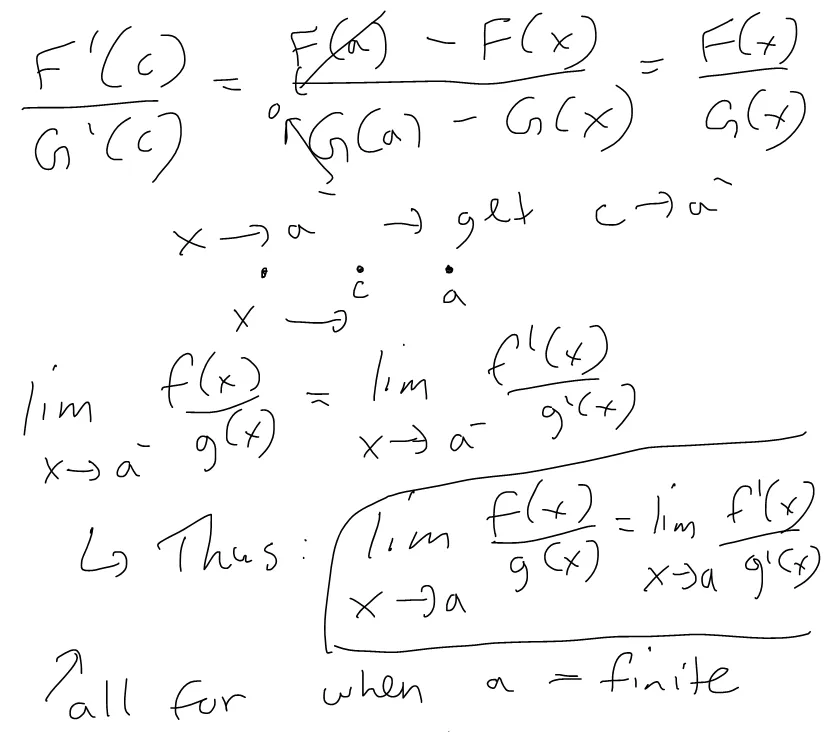 F'(c)/G'(c) = (F(a) - F(x))/(G(a) - G(x)) = F(x)/G(x)
0
x → a⁻ → get c → a⁻
x → c a
lim x→a⁻ f(x)/g(x) = lim x→a⁻ f'(x)/g'(x)
↳ Thus: lim x→a f(x)/g(x) = lim x→a f'(x)/g'(x)
↗ all for when a = finite